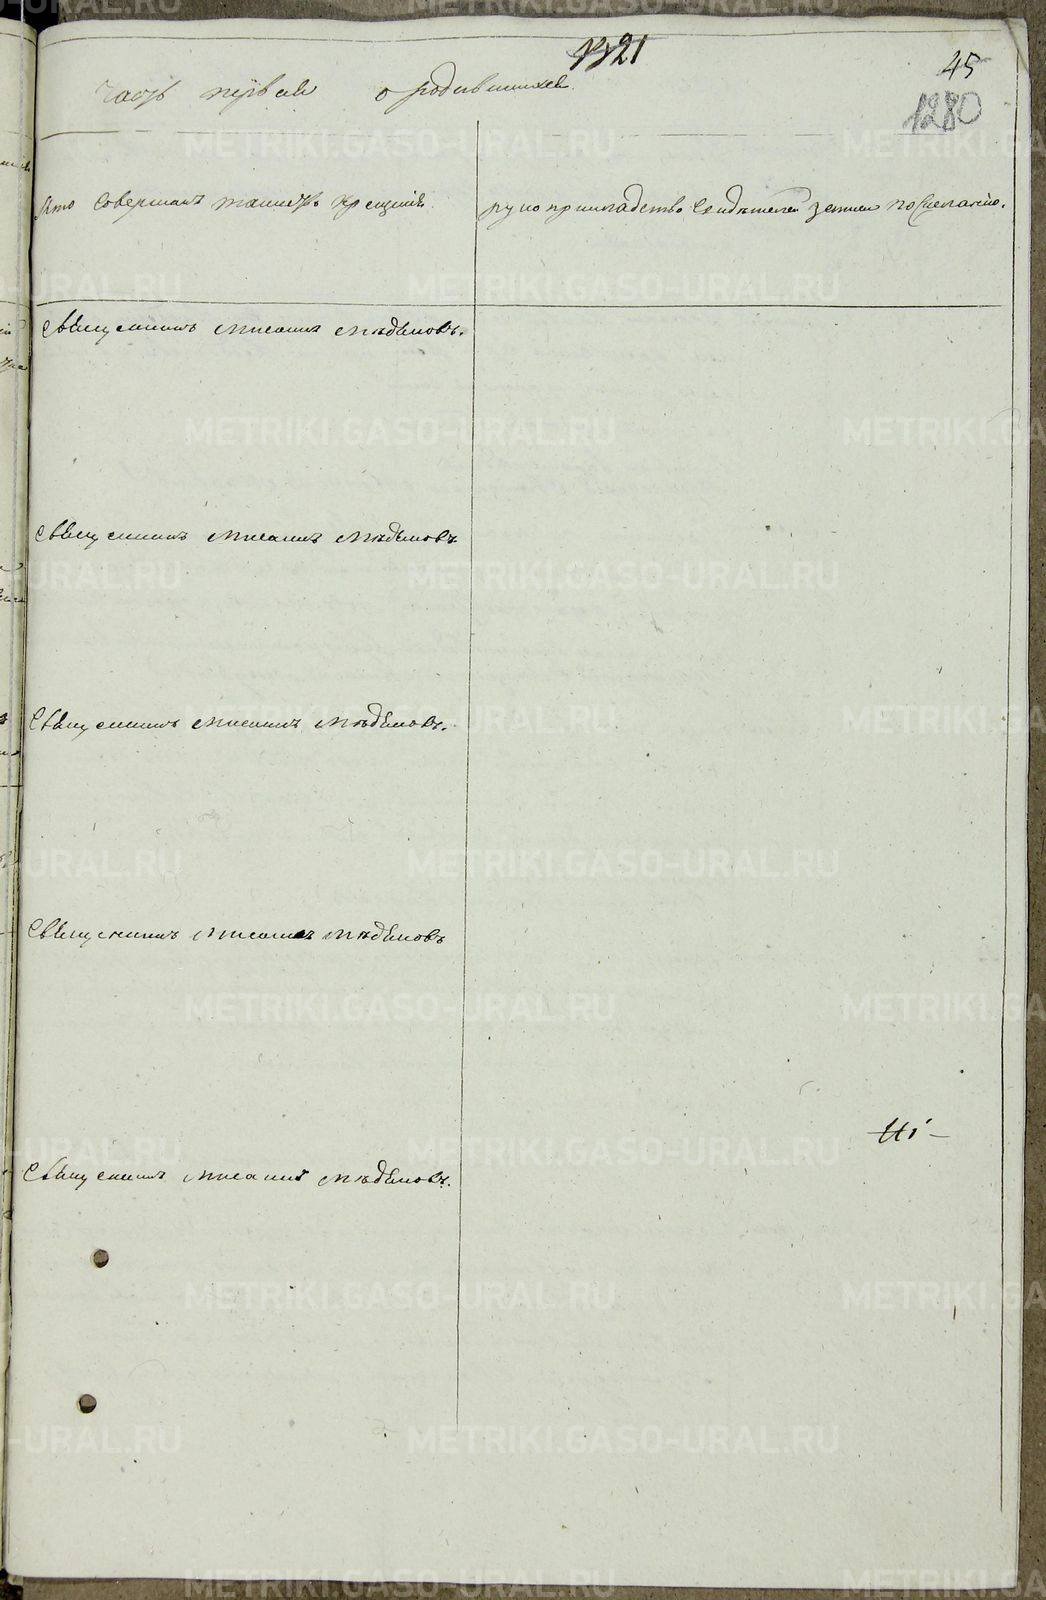 1321
45
1280
Часть первая о родившихся.
Кто совершалъ таинство крещенія
рукоприкладство свидѣтелей записи по желанію.
Священникъ Михаилъ Мѣдемовъ.
Священникъ Михаилъ Мѣдемовъ.
Священникъ Михаилъ Мѣдемовъ.
Священникъ Михаилъ Мѣдемовъ
Священникъ Михаилъ Мѣдемовъ.
METRIKI.GASO-URAL.RU